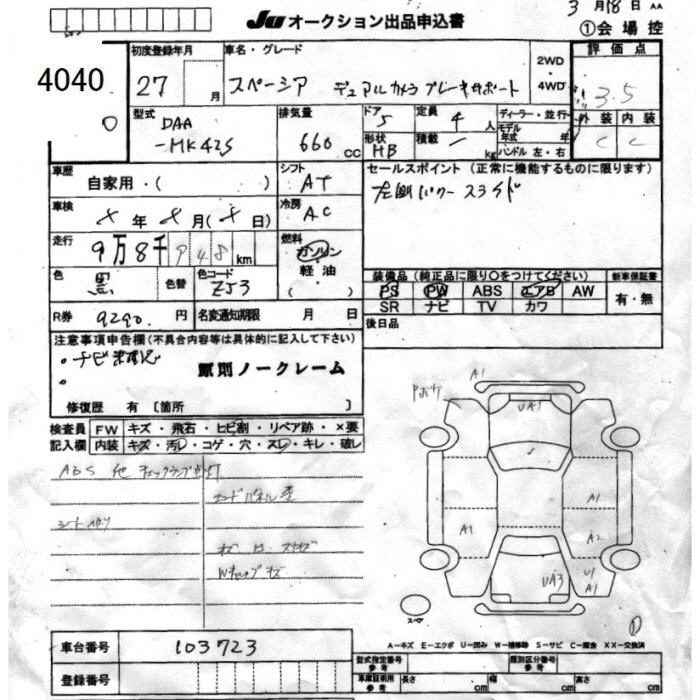 3 月 18 日 AA
JU オークション出品申込書
①会 場 控
4040
初度登録年月
車名・グレード
2WD
・
4WD
評 価 点
27 月
スペーシア デュアルカメラブレーキサポート
3.5
型式
排気量
ドア
定員
ディーラー・並行
外 装
内 装
DAA
-MK42S
660 CC
5
4 人
モデル
年式
年
C
C
形状
HB
積載
kg
ハンドル 左・右
車歴
自家用・( )
シフト
AT
セールスポイント (正常に機能するものに限ります)
左側パワースライド
車検
年 月 ( 日)
冷房
AC
走行
9万8千948 km
燃料
ガソリン
軽 油
( )
色
黒
色替
色コード
ZJ3
装備品(純正品に限り〇をつけてください)
新車保証書
PS PW ABS エアB AW
SR ナビ TV カワ
有・無
R券 9290 円
名変通知期限 月 日
後日品
注意事項申告欄(不具合内容等は具体的に記入して下さい)
原則ノークレーム
修復歴 有 〔箇所 〕
検査員
記入欄
FW キズ・飛石・ヒビ割・リペア跡・×要
内装 キズ・汚レ・コゲ・穴・スレ・キレ・破レ
ABS 他 チェックランプ点灯
A1
UA1
A1
A1
A2
UA3
U1
A1
スペア
車台番号 103723
登録番号
A－キズ E－エクボ U－凹み W－補修跡 S－サビ C－腐食 XX－交換済
型式指定番号
参考
類別区分番号
参考
車庫証明用
参考
長さ cm
幅 cm
高さ cm